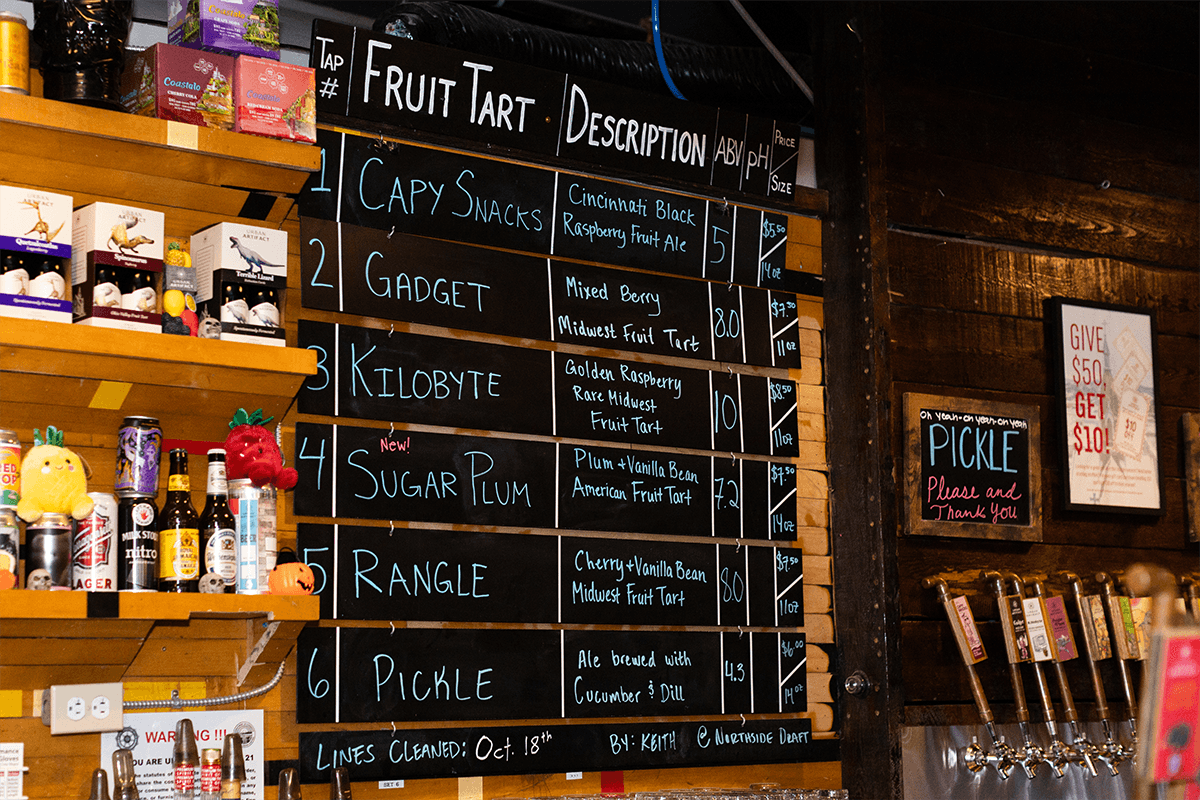 TAP # FRUIT TART DESCRIPTION ABV pH PRICE/SIZE
1 CAPY SNACKS Cincinnati Black Raspberry Fruit Ale 5 $5.50 14oz
2 GADGET Mixed Berry Midwest Fruit Tart 8.0 $7.50 11oz
3 KILOBYTE Golden Raspberry Rare Midwest Fruit Tart 10 $8.50 11oz
4 New! SUGAR PLUM Plum + Vanilla Bean American Fruit Tart 7.2 $7.50 14oz
5 RANGLE Cherry + Vanilla Bean Midwest Fruit Tart 8.0 $7.50 11oz
6 PICKLE Ale brewed with Cucumber & Dill 4.3 $6.00 14oz
LINES CLEANED: Oct. 18th BY: KEITH @ NORTHSIDE DRAFT
SET 6
Coastalo
CHERRY COLA
Coastalo
URBAN ARTIFACT
Quetzalcoatlus
URBAN ARTIFACT
Spinosaurus
Ohio Valley Fruit Tart
URBAN ARTIFACT
Terrible Lizard
MILK STOUT
nitro
LAGER
BEER
WARNING !!!
GIVE
$50,
GET
$10!
$10 OFF
oh yeah-oh yeah-oh yeah
PICKLE
Please and
Thank You